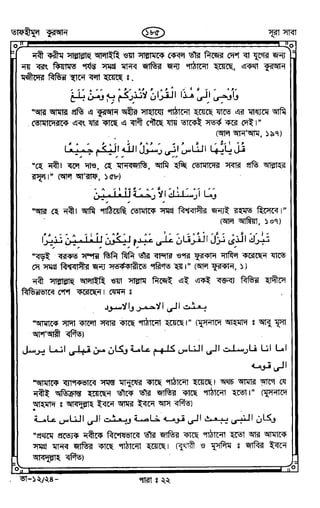 তাফহীমুল কুরআন
১৮৫
সূরা সাবা
নবী করীম সাল্লাল্লাহু আলাইহি ওয়া সাল্লামকে কেবল তাঁর নিজের দেশ বা যুগের জন্য
নয় বরং কিয়ামত পর্যন্ত সমগ্র মানব জাতির জন্য পাঠানো হয়েছে, একথা কুরআন
মজীদের বিভিন্ন স্থানে বলা হয়েছে :
وَأُوحِىَ إِلَىَّ هٰذَا الْقُرْاٰنُ لِأُنْذِرَكُمْ بِهٖ وَمَنْ بَلَغَ
"আর আমার প্রতি এ কুরআন অহীর সাহায্যে পাঠানো হয়েছে যাতে এর মাধ্যমে আমি
তোমাদেরকে এবং যার কাছে এ বাণী পৌঁছে যায় তাকেই সতর্ক করে দেই।"
(আল আন'আম, ১৯)
قُلْ يٰاَيُّهَا النَّاسُ اِنِّىْ رَسُوْلُ اللّٰهِ اِلَيْكُمْ جَمِيْعًا
"হে নবী! বলে দাও, হে মানবজাতি, আমি হচ্ছি তোমাদের সবার প্রতি আল্লাহর
রসূল।" (আল আ'রাফ, ১৫৮)
وَمَا اَرْسَلْنٰكَ اِلَّا رَحْمَةً لِّلْعٰلَمِيْنَ
"আর হে নবী! আমি পাঠিয়েছি তোমাকে সমগ্র বিশ্ববাসীর জন্যই রহমত হিসেবে।"
(আল আম্বিয়া, ১০৭)
تَبٰرَكَ الَّذِىْ نَزَّلَ الْفُرْقَانَ عَلٰى عَبْدِهٖ لِيَكُوْنَ لِلْعٰلَمِيْنَ نَذِيْرًا
"বড়ই বরকত সম্পন্ন তিনি যিনি তাঁর বান্দার ওপর ফুরকান নাযিল করেছেন যাতে
সে সমগ্র বিশ্ববাসীর জন্য সতর্ককারীতে পরিণত হয়।" (আল ফুরকান, ১)
নবী সাল্লাল্লাহু আলাইহি ওয়া সাল্লাম নিজেই এই একই বক্তব্য বিভিন্ন হাদীসে
বিভিন্নভাবে পেশ করেছেন। যেমন :
بعثت الى الاحمر والاسود
"আমাকে সাদা কালো সবার কাছে পাঠানো হয়েছে।" (মুসনাদে আহমাদ : আবু মূসা
আশ'আরী বর্ণিত)
اما انا فارسلت الى الناس كلهم عامة وكان من قبلى انما يرسل
الى قومه
"আমাকে ব্যাপকভাবে সমস্ত মানুষের কাছে পাঠানো হয়েছে। অথচ আমার আগে যে
নবীই অতিক্রান্ত হয়েছেন তাঁকে তাঁর জাতির কাছে পাঠানো হতো।" (মুসনাদে
আহমাদ : আবদুল্লাহ ইবনে আমর ইবনে আস বর্ণিত)
وكان النبى يبعث الى قومه خاصة وبعثت الى الناس عامة
"প্রথমে প্রত্যেক নবীকে বিশেষভাবে তাঁর জাতির কাছে পাঠানো হতো আর আমাকে
সমগ্র মানব জাতির কাছে পাঠানো হয়েছে। (বুখারী ও মুসলিম : জাবির ইবনে
আবদুল্লাহ বর্ণিত)
তা-১২/২৪-
পারা : ২২